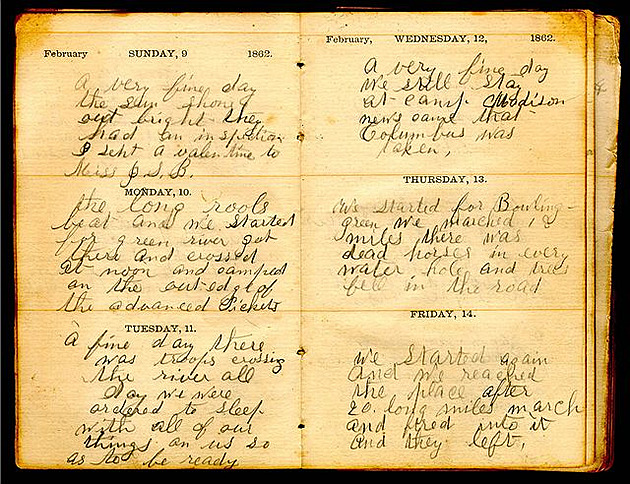 February SUNDAY, 9 1862.
A very fine day
the sun shoned
out bright they
had an inspection
I sent a valentine to
Miss J.S.B.
MONDAY, 10.
the long rools
beat and we started
for green river got
there and crossed
at noon and camped
on the out edg of
the advanced Pickets
TUESDAY, 11.
A fine day there
was troops crossing
the river all
day we were
ordered to sleep
with all of our
things on us so
as to be ready
February, WEDNESDAY, 12, 1862.
A very fine day
we still stay
at camp Maddison
news came that
Columbus was
taken,
THURSDAY, 13.
We started for Bowling-
green we marched 12
miles there was
dead horses in every
water hole and trees
fell in the road
FRIDAY, 14.
we started again
And we reached
the place after
20 long miles march
and fired into it
and they left,